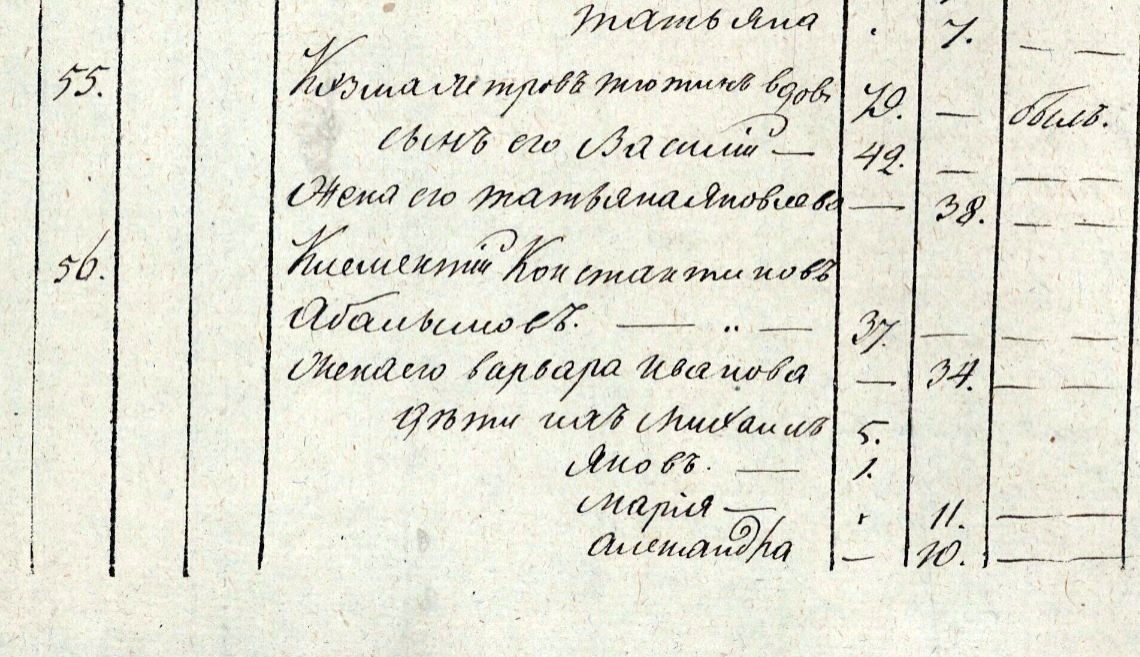 Татьяна . 7. — —
55. Козма Петровъ Тютинъ вдовъ 70. — былъ.
сынъ его Василій — 42. — — —
Жена его Татьяна Яковлева — 38. — —
56. Климентій Константиновъ
Абалымовъ. — „ — 37. — — —
Жена его варвара Иванова — 34. — —
дѣти ихъ Михаилъ 5.
Яковъ. — 1.
Марія — . 11. —
Александра — 10. —